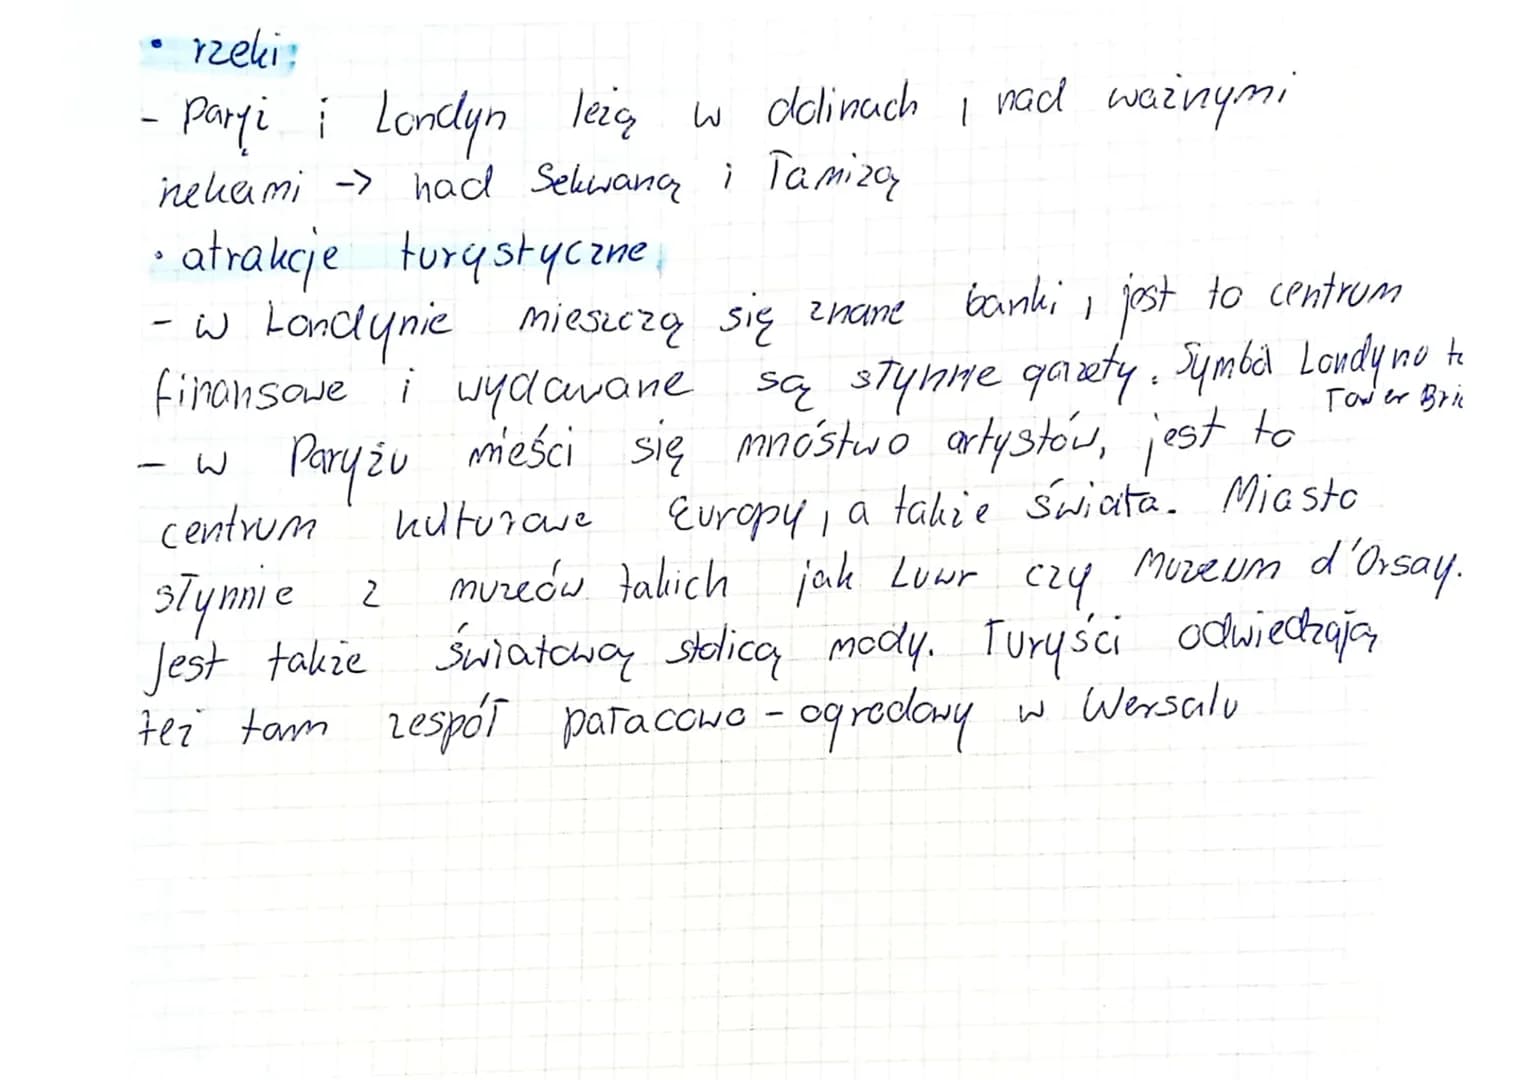 • rzeki:
- Paryż i Londyn leżą w dolinach, nad ważnymi
rzekami -> nad Sekwaną i Tamizą
• atrakcje turystyczne:
- w Londynie mieszczą się znane banki, jest to centrum
finansowe i wydawane są słynne gazety. Symbol Londynu to
Tower Bri
- w Paryżu mieści się mnóstwo artystów, jest to
centrum kulturowe Europy, a także świata. Miasto
słynnie z muzeów takich jak Luwr czy Muzeum d'Orsay.
Jest także światową stolicą mody. Turyści odwiedzają
też tam zespół pałacowo-ogrodowy w Wersalu